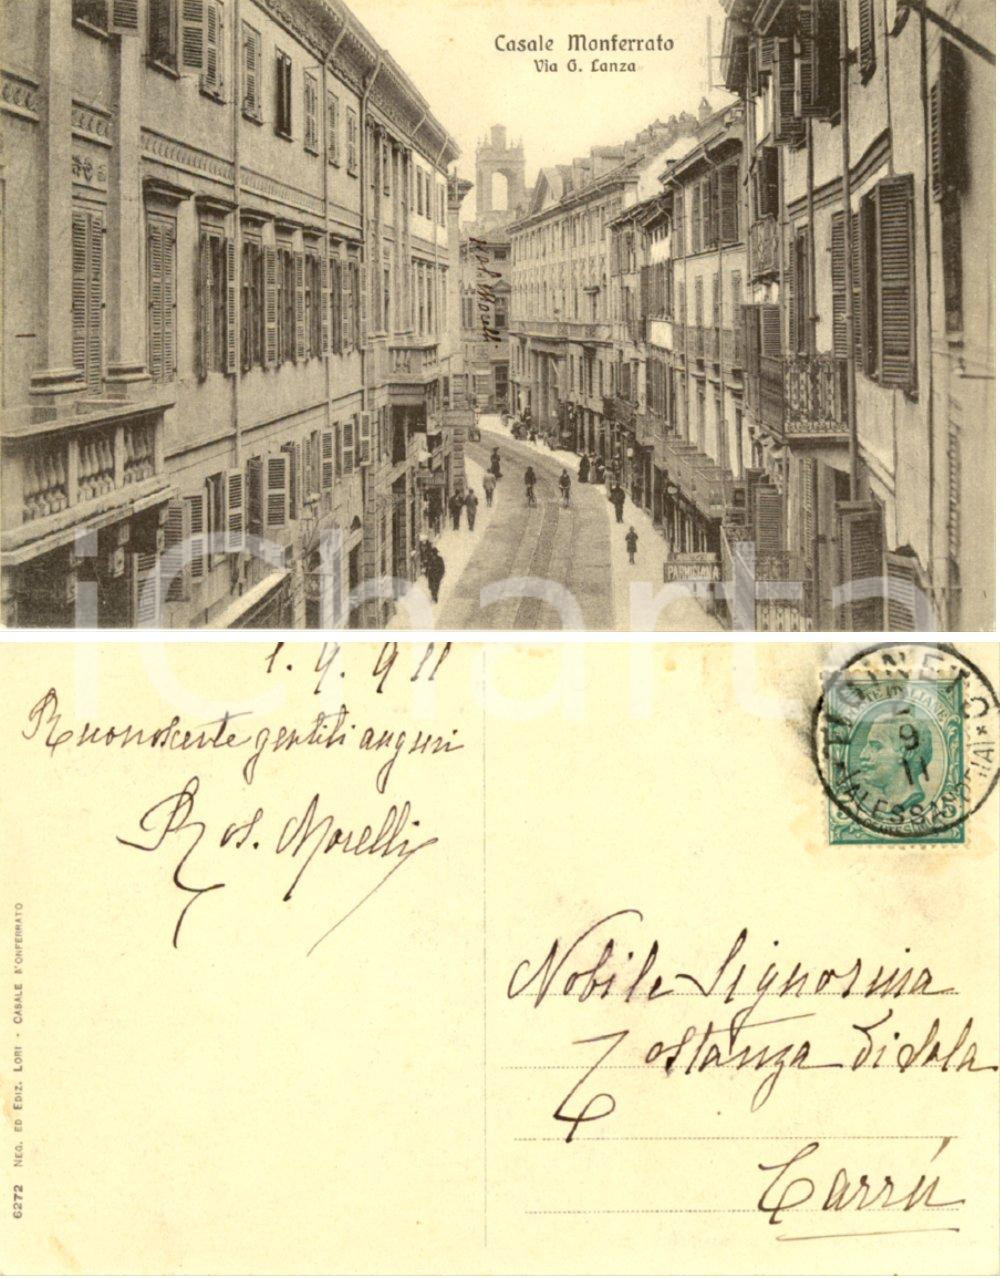 Casale Monferrato
Via G. Lanza
Morelli
PARMIGIANA
iCharta
1. 9. 911
Riconoscente gentili auguri
Ros. Morelli
9
11
(ALESSANDRIA)
Nobile Signorina
Costanza Di Sala
Carrù
6272 NEG. ED EDIZ. LORI - CASALE MONFERRATO